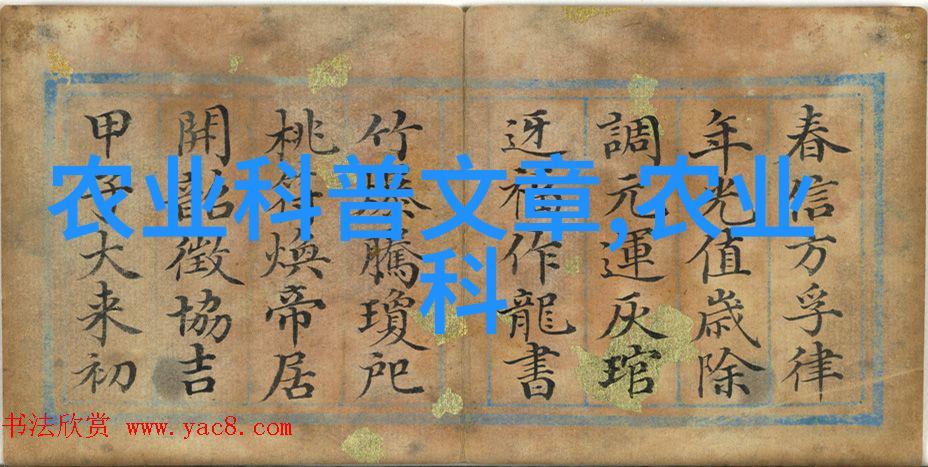 春信方孚律
年光值歲除
調元運灰琯
迓福作龍書
竹騰瓊戺
桃符煥帝居
開韶徵協吉
甲子大来初
农业科普文章,农业
科
书法欣赏 www.yac8.com